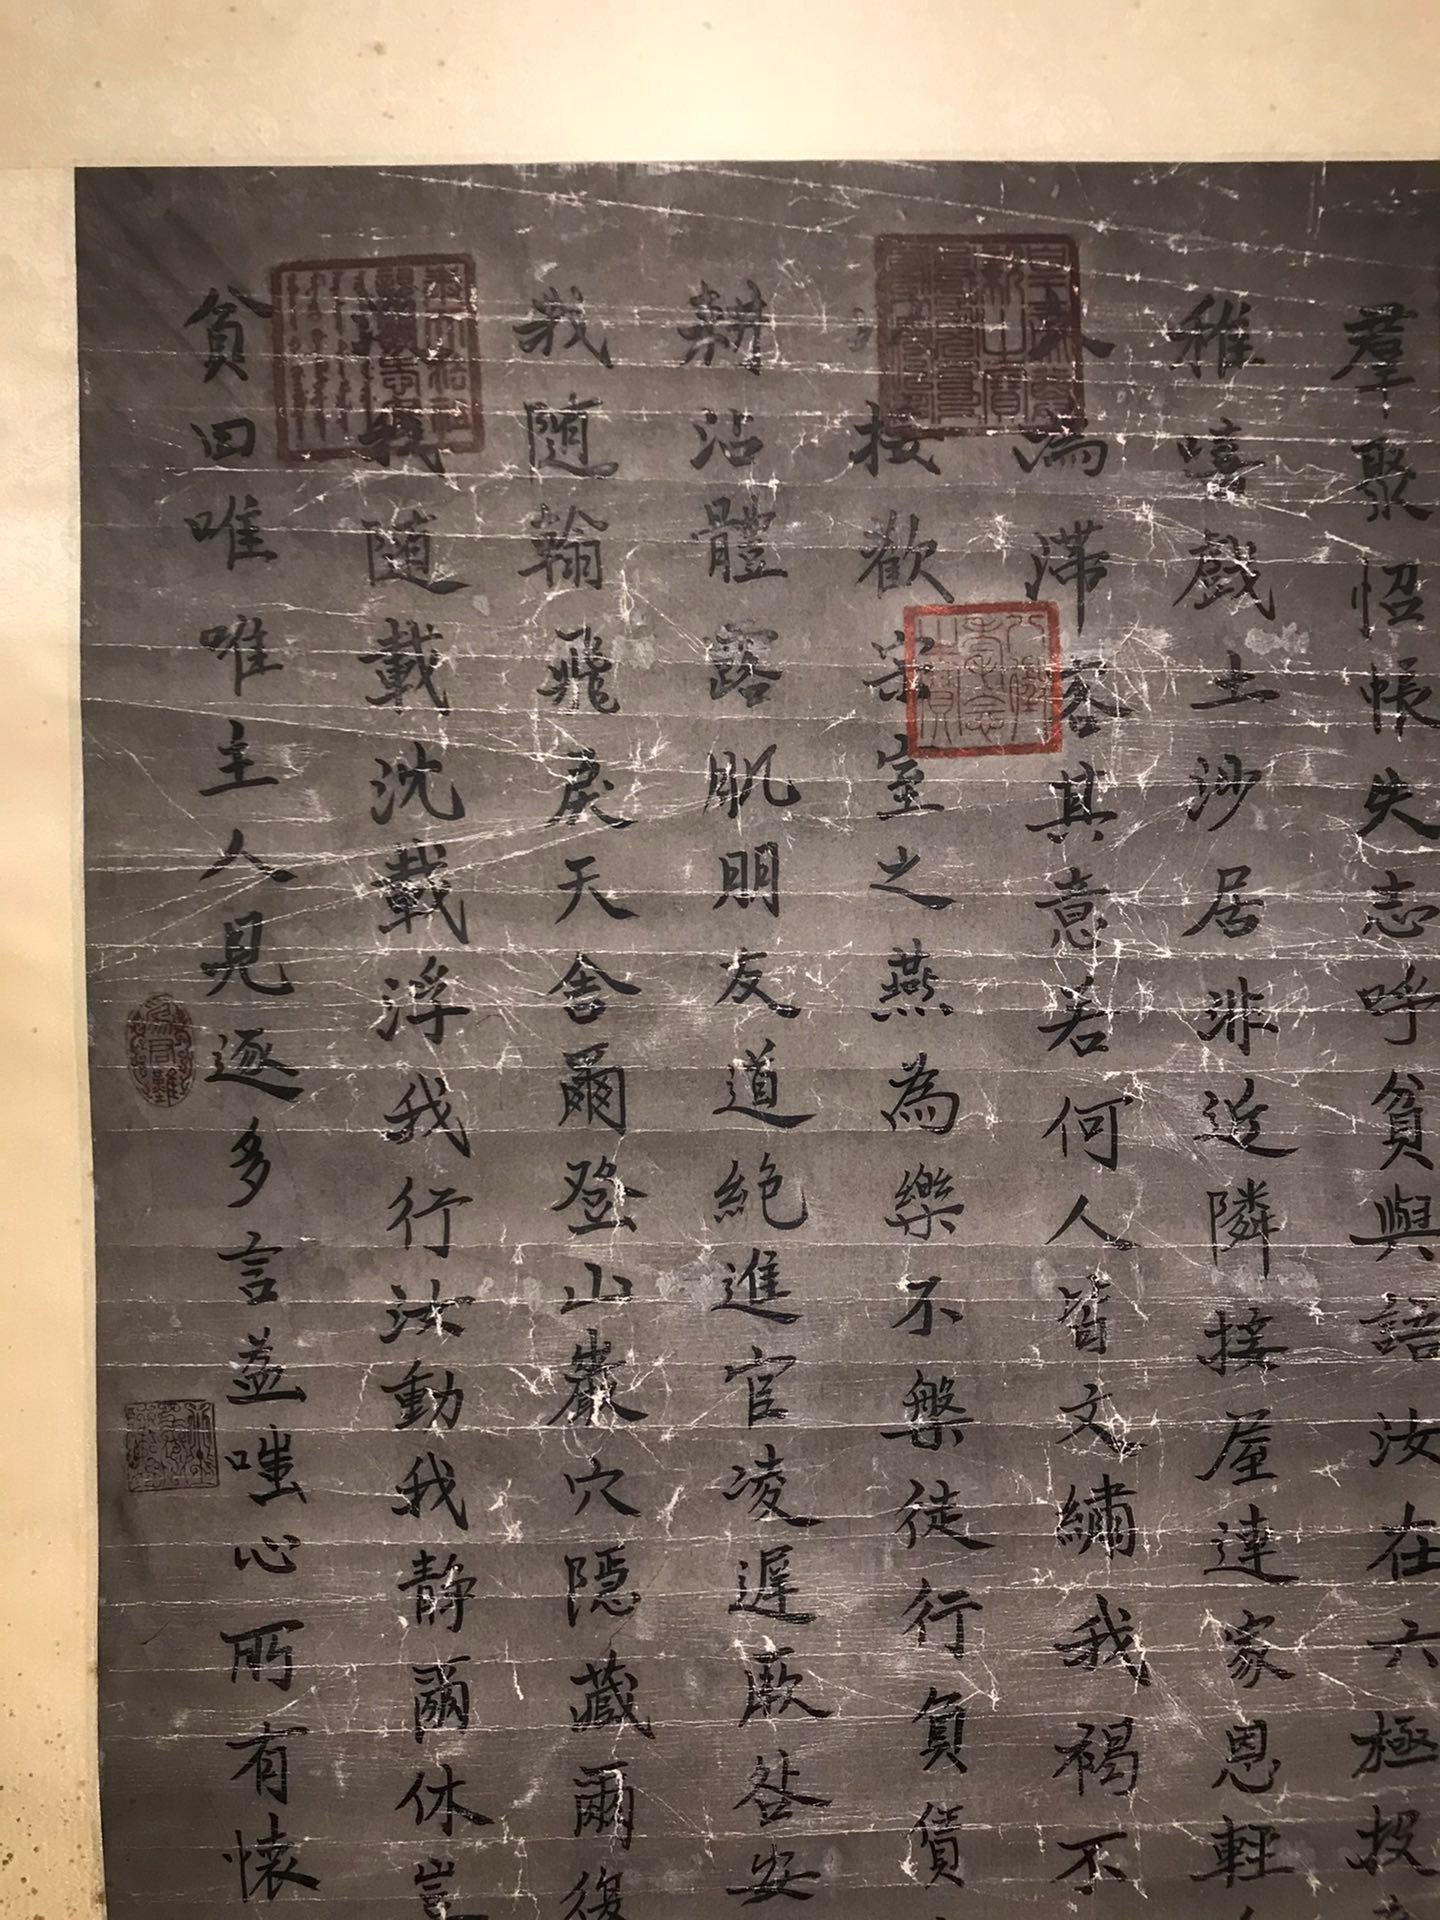 羣聚怊悵失志呼貧與語汝在六極投
稚嘻戲土沙居非近隣接屋連家恩輕
久為滯客其意若何人皆文繡我褐不
接歡宗室之燕為樂不槃徒行負賃
耕沾體露肌朋友道絕進官凌遲厥咎安
我隨翰飛戾天舍爾登山巖穴隱藏爾復
我隨載沈載浮我行汝動我靜爾休豈
貧曰唯唯主人見逐多言益嗤心所有懷
八徵耄念之寶